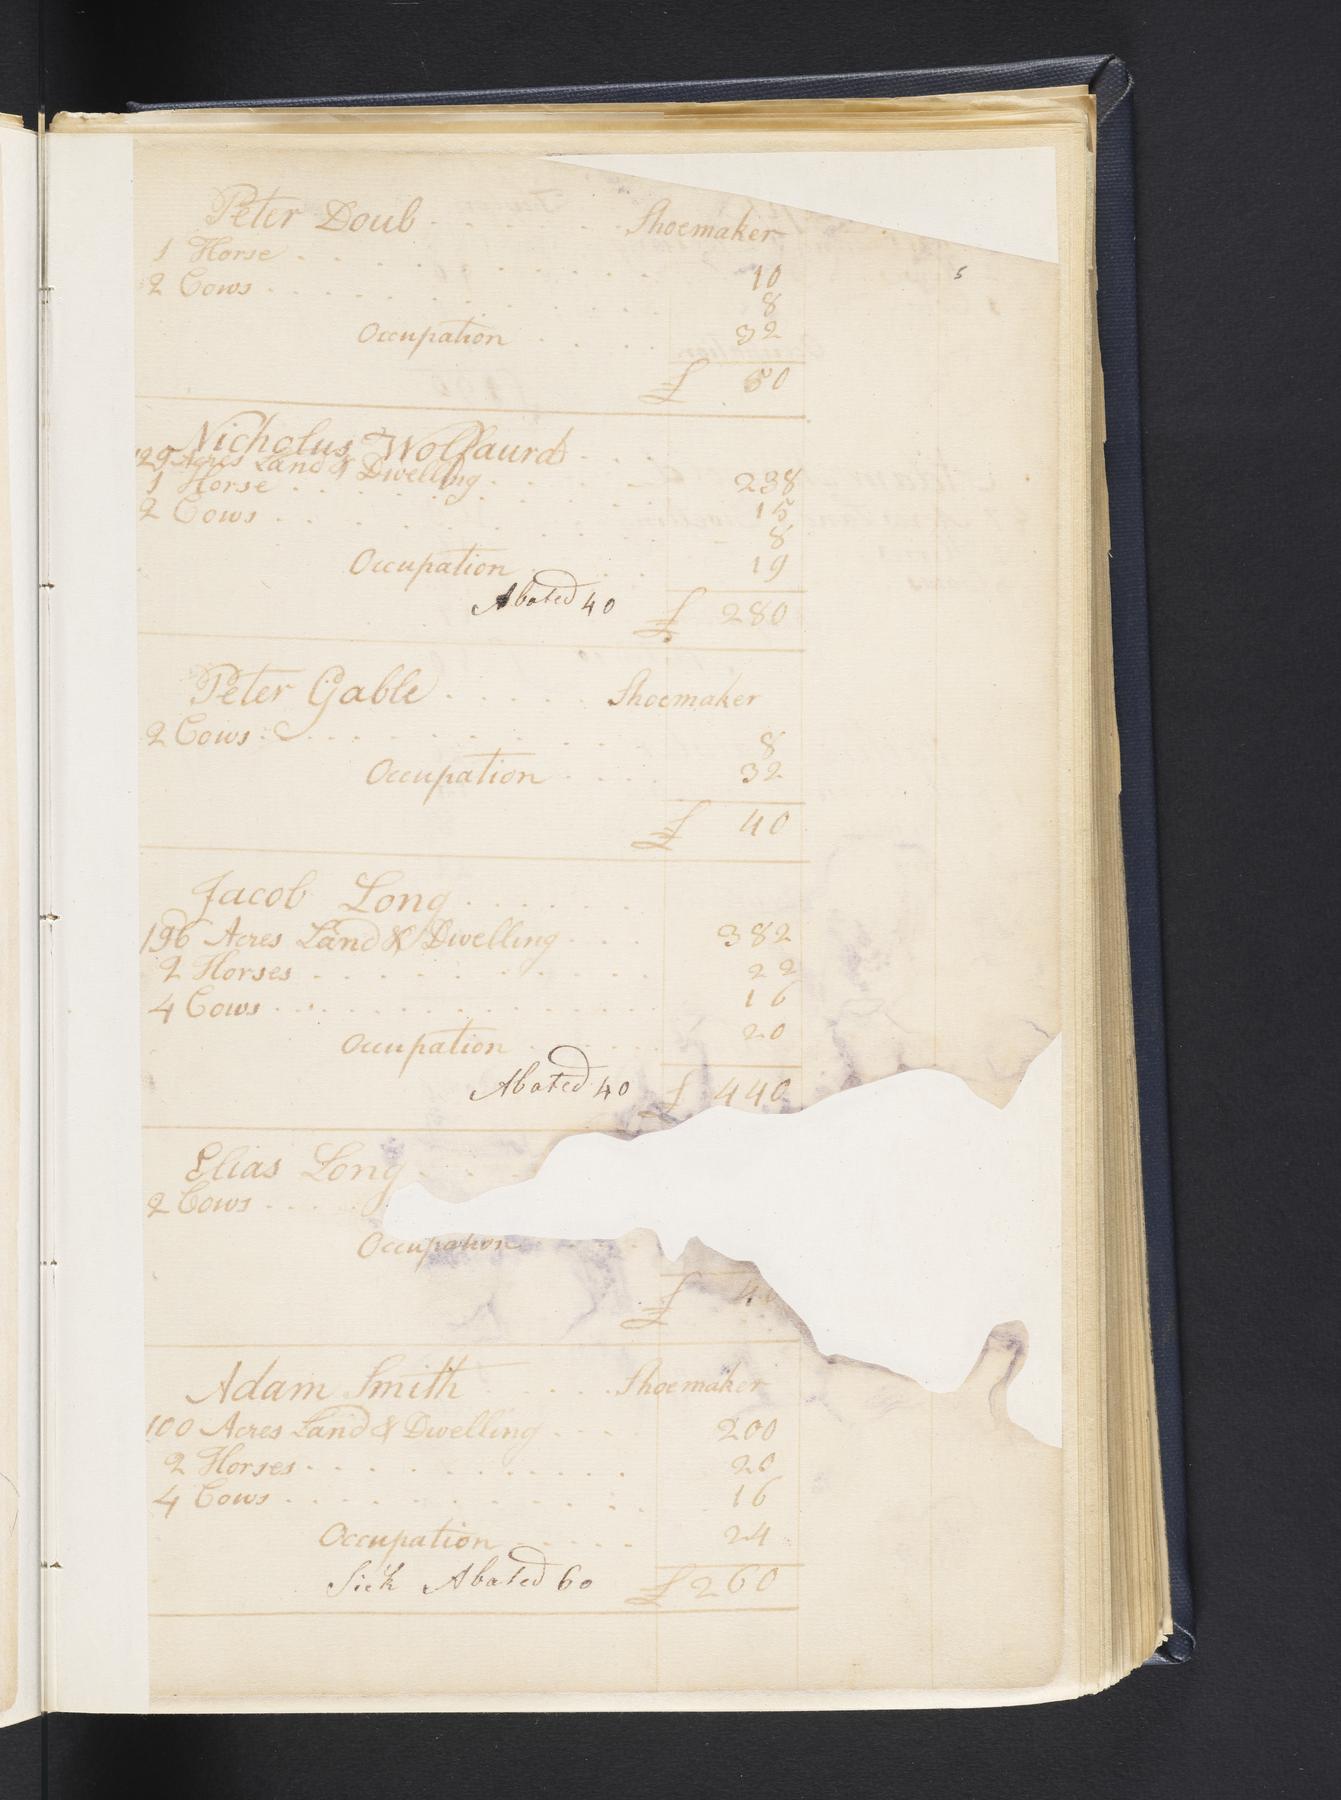 Peter Doub . . . . . . Shoemaker
1 Horse . . . . . . . . . . . 10
2 Cows . . . . . . . . . . . 8
Occupation . . . . 32
£ 50
Nicholus Wolfaurd . . . .
129 Acres Land & Dwelling . . . . . 238
1 Horse . . . . . . . . . . 15
2 Cows . . . . . . . . . . 8
Occupation . . . . 19
Abated 40 £ 280
Peter Gable . . . . . Shoemaker
2 Cows . . . . . . . . . . 8
Occupation . . . . 32
£ 40
Jacob Long . . . . . .
196 Acres Land & Dwelling . . . . 382
2 Horses . . . . . . . . . . 22
4 Cows . . . . . . . . . . . . 16
Occupation . . . . 20
Abated 40 £ 440
Elias Long . . .
2 Cows . . . .
Occupation . . . .
£ 40
Adam Smith . . . . . Shoemaker
100 Acres Land & Dwelling . . . . 200
2 Horses . . . . . . . . . . 20
4 Cows . . . . . . . . . . . 16
Occupation . . . . 24
Sick Abated 60 £ 260